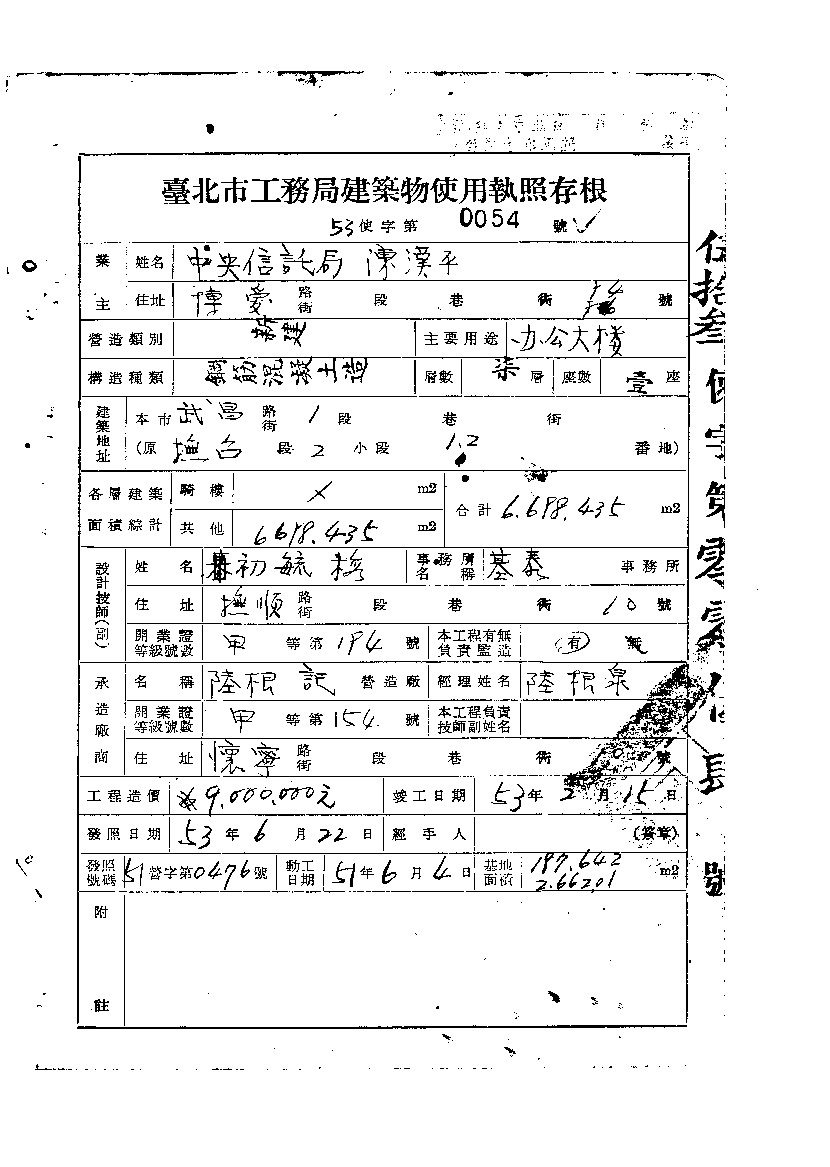 臺北市工務局建築物使用執照存根
53使字第 0054 號
業主 姓名 中央信託局 陳漢平
住址 博愛 路街 段 巷 街 號
營造類別 新建 主要用途 办公大樓
構造種類 鋼筋混凝土造 層數 柒層 座數 壹座
建築地址 本市武昌路街1段 巷 街
(原 撫台 段 2 小段 1.2 番地)
各層建築面積綜計 騎樓 × m2 合計 6.698.435 m2
其他 6698.435 m2
設計技師(副) 姓名 初毓 事務所名稱 基泰 事務所
住址 撫順 路街 段 巷 街 10 號
開業證等級號數 甲 等第 194 號 本工程有無負責監造 有 無
承造廠商 名稱 陸根記 營造廠 經理姓名 陸根泉
開業證等級號數 甲 等第 154 號 本工程負責技師副姓名
住址 懷寧 路街 段 巷 街 號
工程造價 9,000,000元 竣工日期 53年2月15日
發照日期 53年6月22日 經手人 (簽章)
發照號碼 51營字第0476號 動工日期 51年6月4日 基地面積 197.642 m2
2.66201
附註
伍拾叁使字第零零 號